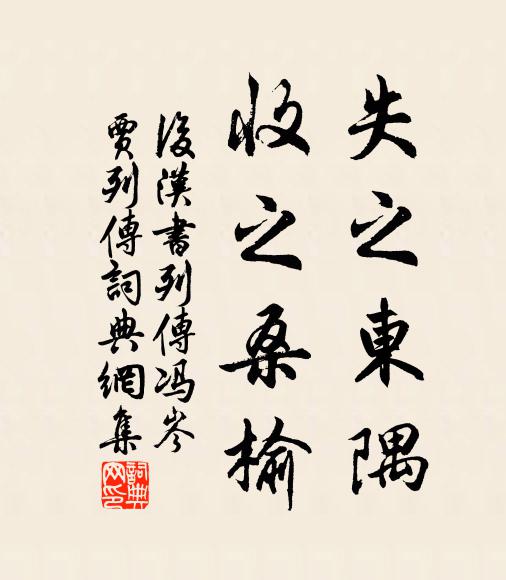 失之東隅
收之桑榆
後漢書列傳馮岑
賈列傳詞典網集
詞典网印